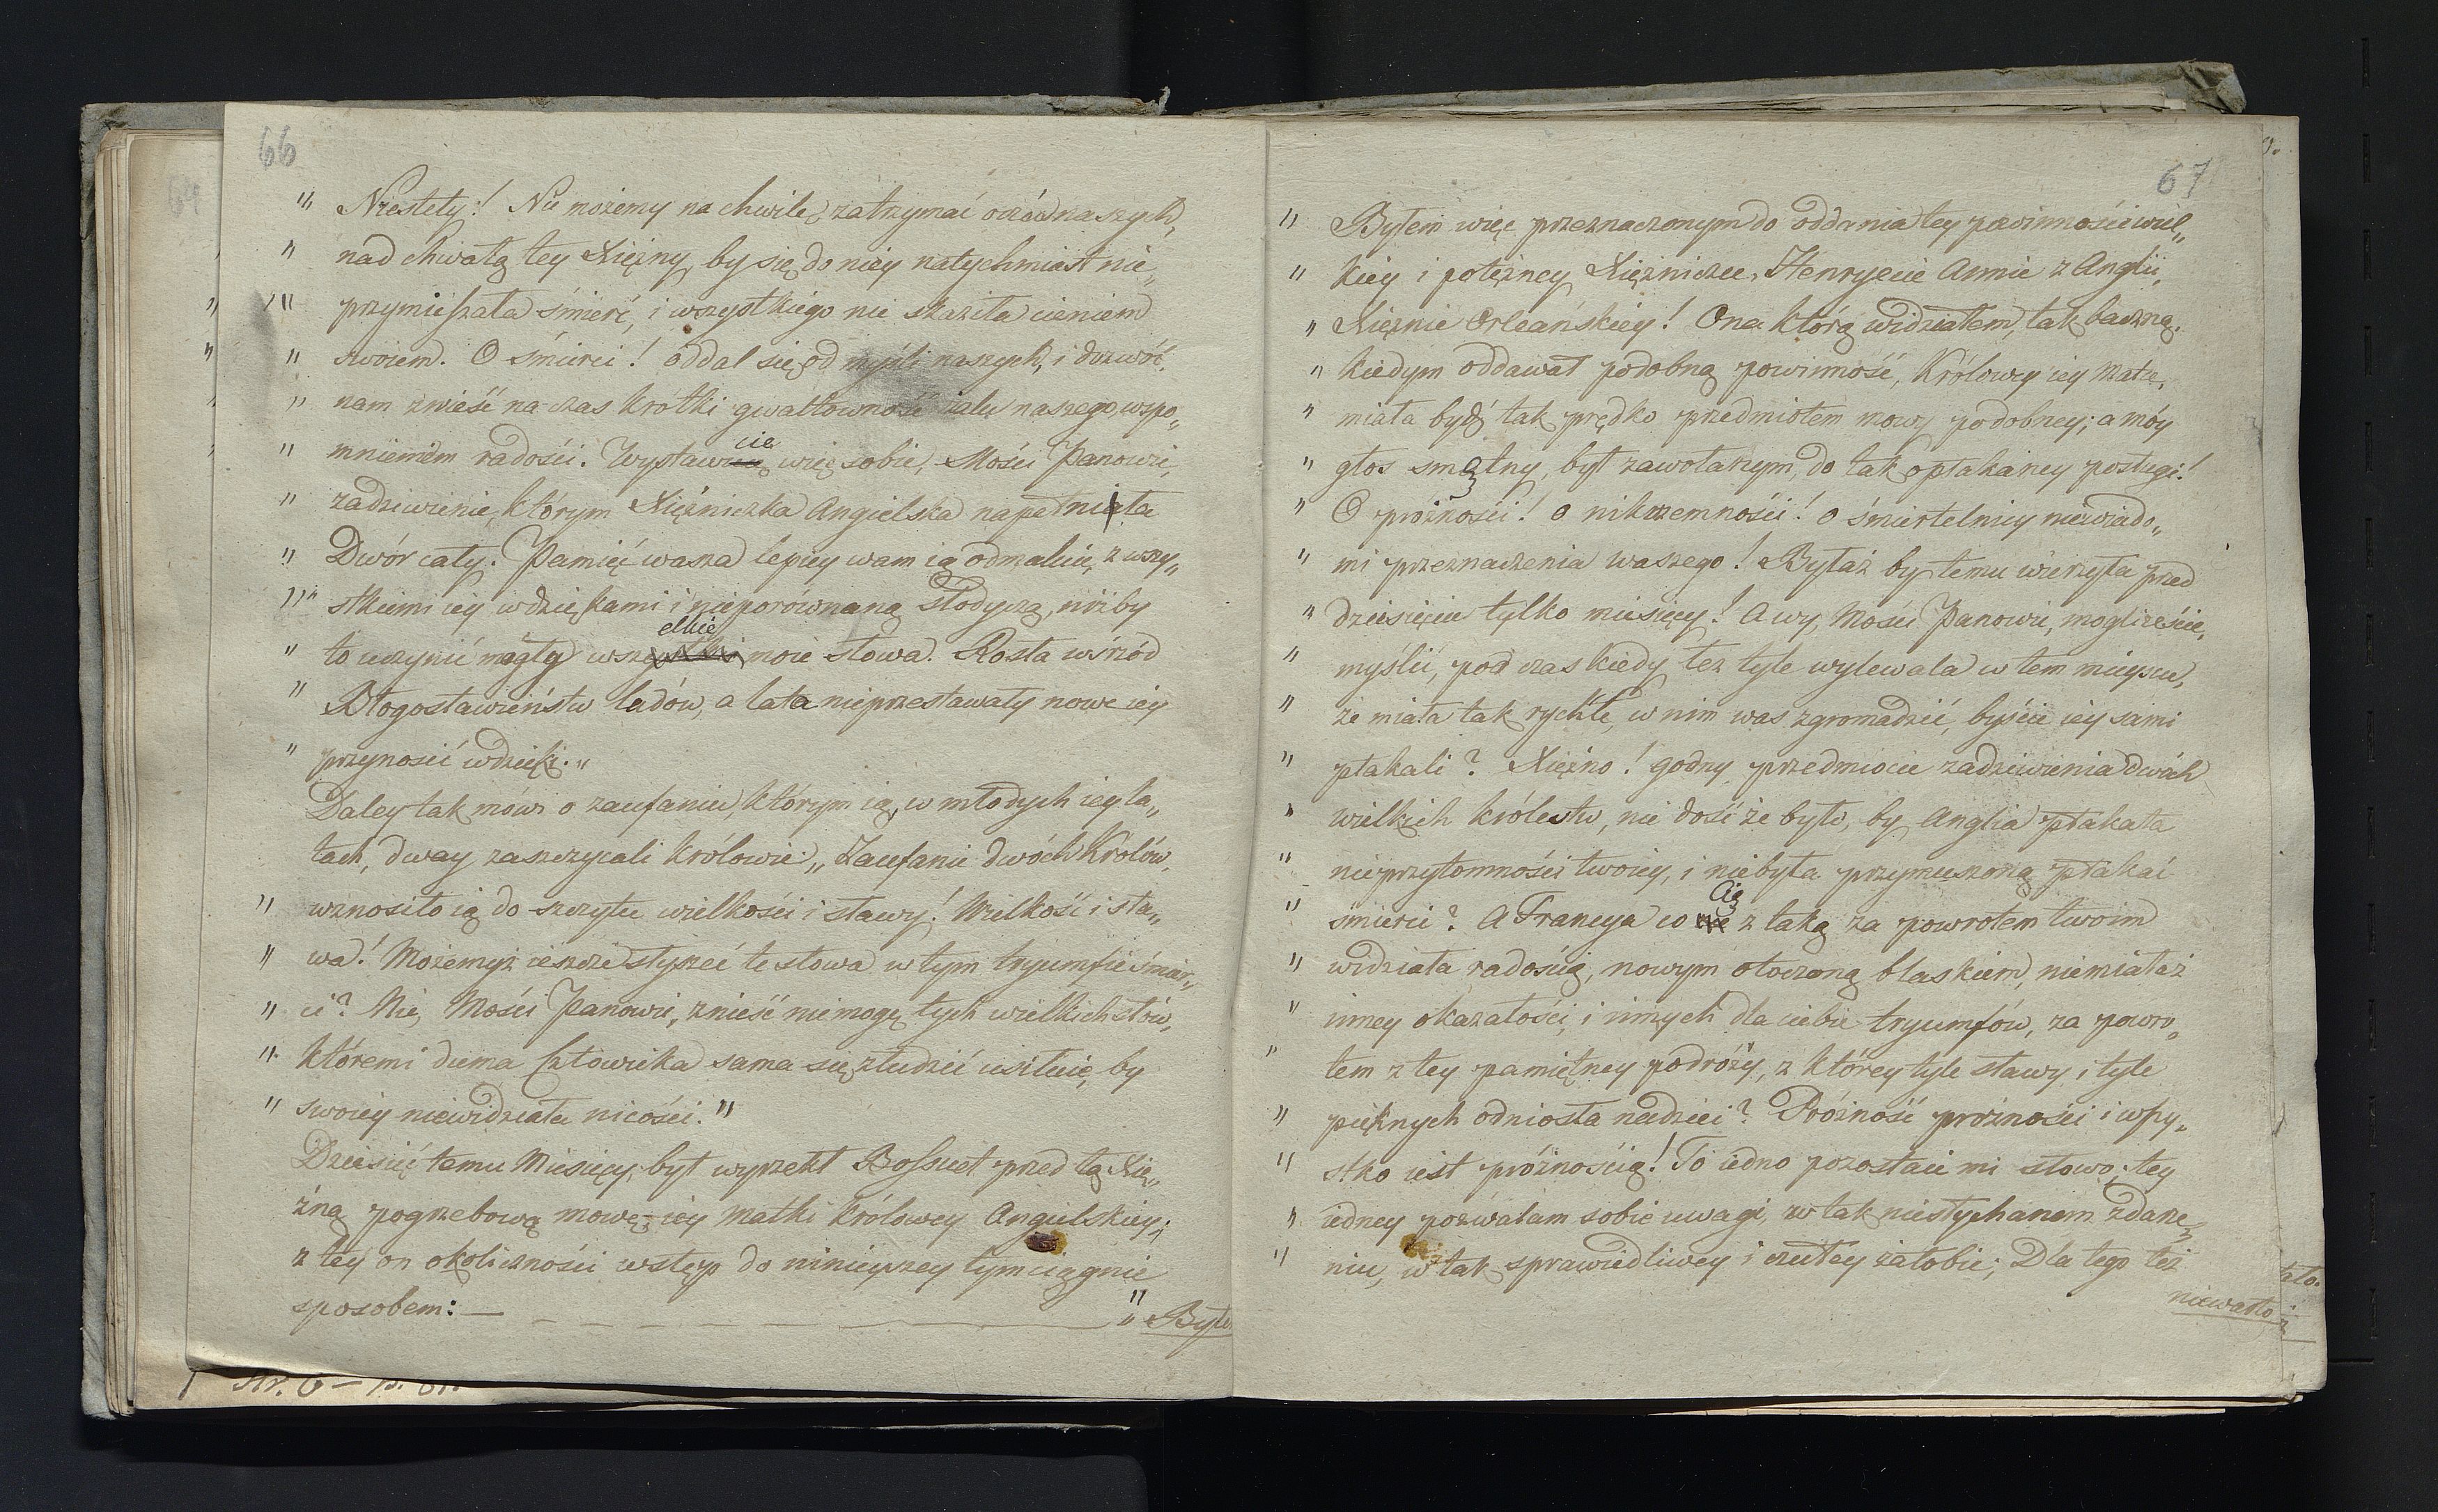 66
„ Niestety! Nie możemy na chwilę zatrzymać oczów naszych,
„ nad chwałą tey Xiężny, by się do niey natychmiast nie„
„ przymięszała śmierć, i wszystkiego nie skaziła cieniem
„ swoiem. O śmierci! oddal się od myśli naszych, i dozwól,
„ nam zwieść na czas krotki gwałtowność żalu naszego, wspo„
„ mnieniem radości. Wystawcie więc sobie, Mości Panowie,
„ zadziwienie, którym Xiężniczka Angielska napełniała
„ Dwór cały. Pamięć wasza lepiey wam ią odmaluie, z wszy„
„ stkiemi iey wdziękami i nieporównaną słodyczą, niżby
„ to uczynić mogły wszelkie moie słowa. Rosła wśrzód
„ Błogosławieństw ludów, a lata nieprzestawały nowe iey
„ przynosić wdzięki. „
Daley tak mówi o zaufaniu, którym ią, w młodych iey la„
tach, dway zaszczycali królowie: „ Zaufanie dwóch Królów,
„ wznosiło ią do szczytu wielkości i sławy! Wielkość i sła„
„ wa! Możemyż ieszcze słyszeć te słowa w tym tryumfie śmier„
„ ci? Nie, Mości Panowie, znieść niemogę tych wielkich słów,
„ któremi duma człowieka sama się złudzić usiłuie, by
„ swoiey niewidziała nicości. „
Dziesięć temu Miesięcy, był wyrzekł Bossuet przed tą Xię„
żną pogrzebową mowę iey Matki Królowey Angielskiey;
z tey on okoliczności wstęp do ninieyszey tym ciągnie
sposobem: —
„ Byłe
67
„ Byłem więc przeznaczonym do oddania tey powinności wiel„
„ kiey i potężney Xiężniczce, Henryecie Annie z Anglii,
„ Xiężnie Orleańskiey! Ona którą widziałem, tak baczną,
„ kiedym oddawał podobną powinność, Królowey iey Matce,
„ miała bydź tak prędko przedmiotem mowy podobney; a móy
„ głos smętny, był zawołanym, do tak opłakaney posługi!
„ O próżności! o nikczemności! o śmiertelnicy niewiado„
„ mi przeznaczenia waszego! Byłaż by temu wierzyła przed
„ dziesięciu tylko miesięcy! A wy, Mości Panowie, mogliżeście,
„ myślić, pod czas kiedy łez tyle wylewała w tem mieyscu,
„ że miała tak rychłe, w nim was zgromadzić, byście iey sami
„ płakali? Xiężno! godny przedmiocie zadziwienia dwóch
„ wielkich królestw, nie dość że było, by Anglia płakała
„ nieprzytomności twoiey, i niebyła przymuszoną płakać
„ śmierci? A Francya co Cię z taką za powrotem twoim
„ widziała radością, nowym otoczoną blaskiem, niemiałaż
„ inney okazałości, i innych dla ciebie tryumfów, za powro„
„ tem z tey pamiętney podróży, z którey tyle sławy, i tyle
„ pięknych odniosła nadziei? Próżność próżności i wszy„
„ stko iest próżnością! To iedno pozostaie mi słowo; tey
„ iedney pozwalam sobie uwagi, w tak niesłychanem zdarze„
„ niu, w tak sprawiedliwey i czułey żałobie; Dla tego też
niewarto